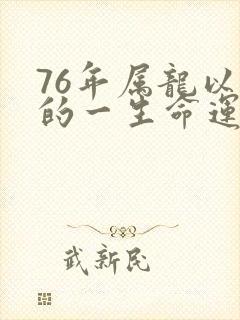 76年属龍以
的一生命運
武新民